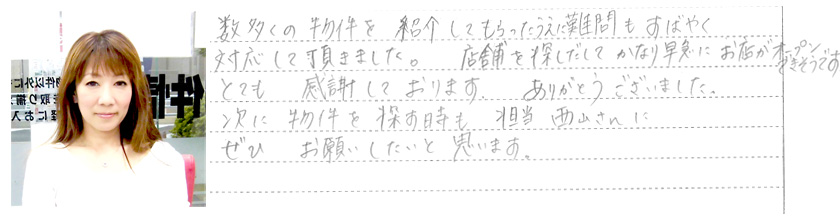 数多くの物件を紹介してもらったうえに難問もすばやく
対応して頂きました。 店舗を探しだしてかなり早急にお店がオープンできそうです
とても 感謝しております。 ありがとうございました。
次に物件を探す時も 担当 西山さんに
ぜひ お願いしたいと思います。
件情
物件以外に
取り揃
軽にお